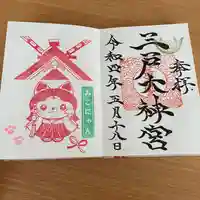 奉拝
三戸大神宮
令和四年五月十八日
みこにゃん